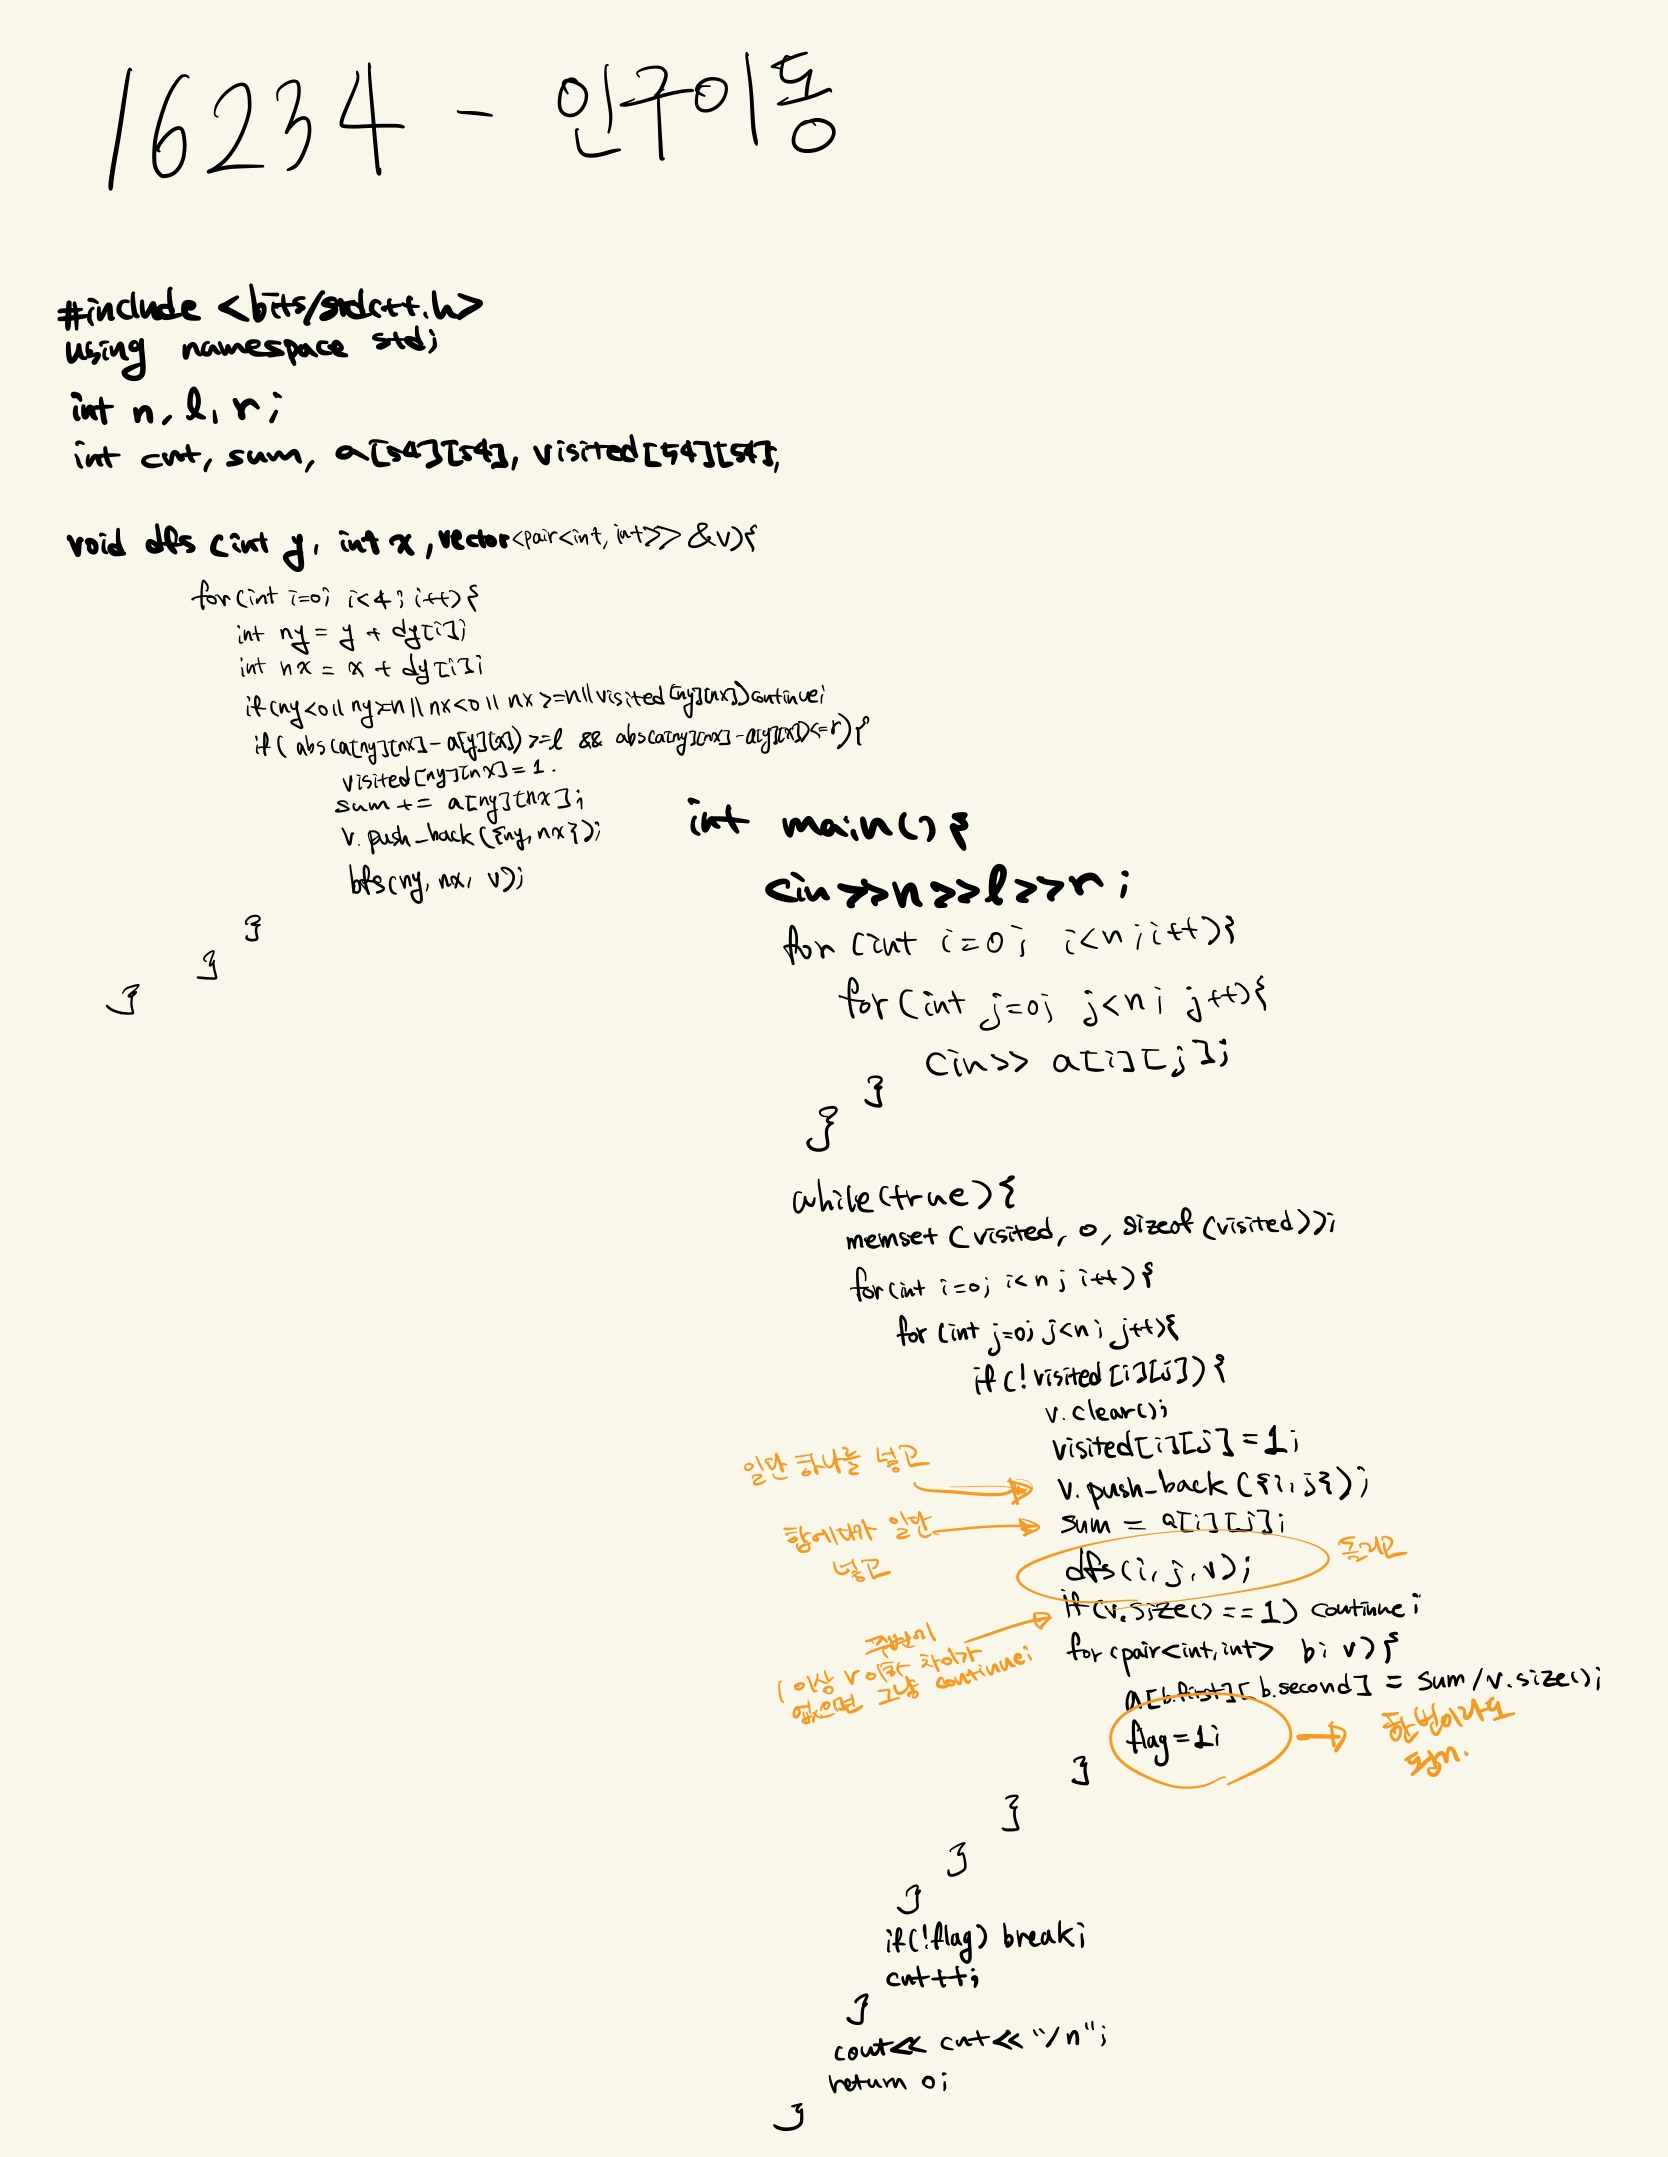 16234 - 인구이동
#include <bits/stdc++.h>
using namespace std;
int n, l, r;
int cnt, sum, a[54][54], visited[54][54],
void dfs (int y, int x, vector<pair<int, int>> &v){
for(int i=0; i<4; i++){
int ny = y + dy[i];
int nx = x + dy[i];
if(ny<0 || ny>=n || nx<0 || nx>=n || visited[ny][nx]) continue;
if( abs(a[ny][nx] - a[y][x]) >=l && abs(a[ny][nx] - a[y][x])<=r){
visited[ny][nx] = 1.
sum += a[ny][nx];
v.push_back({ny, nx});
bfs(ny, nx, v);
}
}
}
int main(){
cin>>n>>l>>r;
for (int i=0; i<n; i++){
for (int j=0; j<n; j++){
cin>> a[i][j];
}
}
while(true){
memset (visited, 0, sizeof(visited));
for(int i=0; i<n; i++){
for (int j=0; j<n; j++){
if(!visited[i][j]){
v.clear();
visited[i][j] = 1;
일단 하나를 넣고
v.push_back({i,j});
합에다가 일단
넣고
sum = a[i][j];
dfs(i, j, v);
돌리고
if(v.size() == 1) continue;
주변에
l 이상 r 이하 차이가
없으면 그냥 continue;
for(pair<int,int> b: v){
a[b.first][b.second] = sum/v.size();
flag=1;
한번이라도
}
}
}
}
if(!flag) break;
cnt++;
}
cout<< cnt<< "/n";
return 0;
}